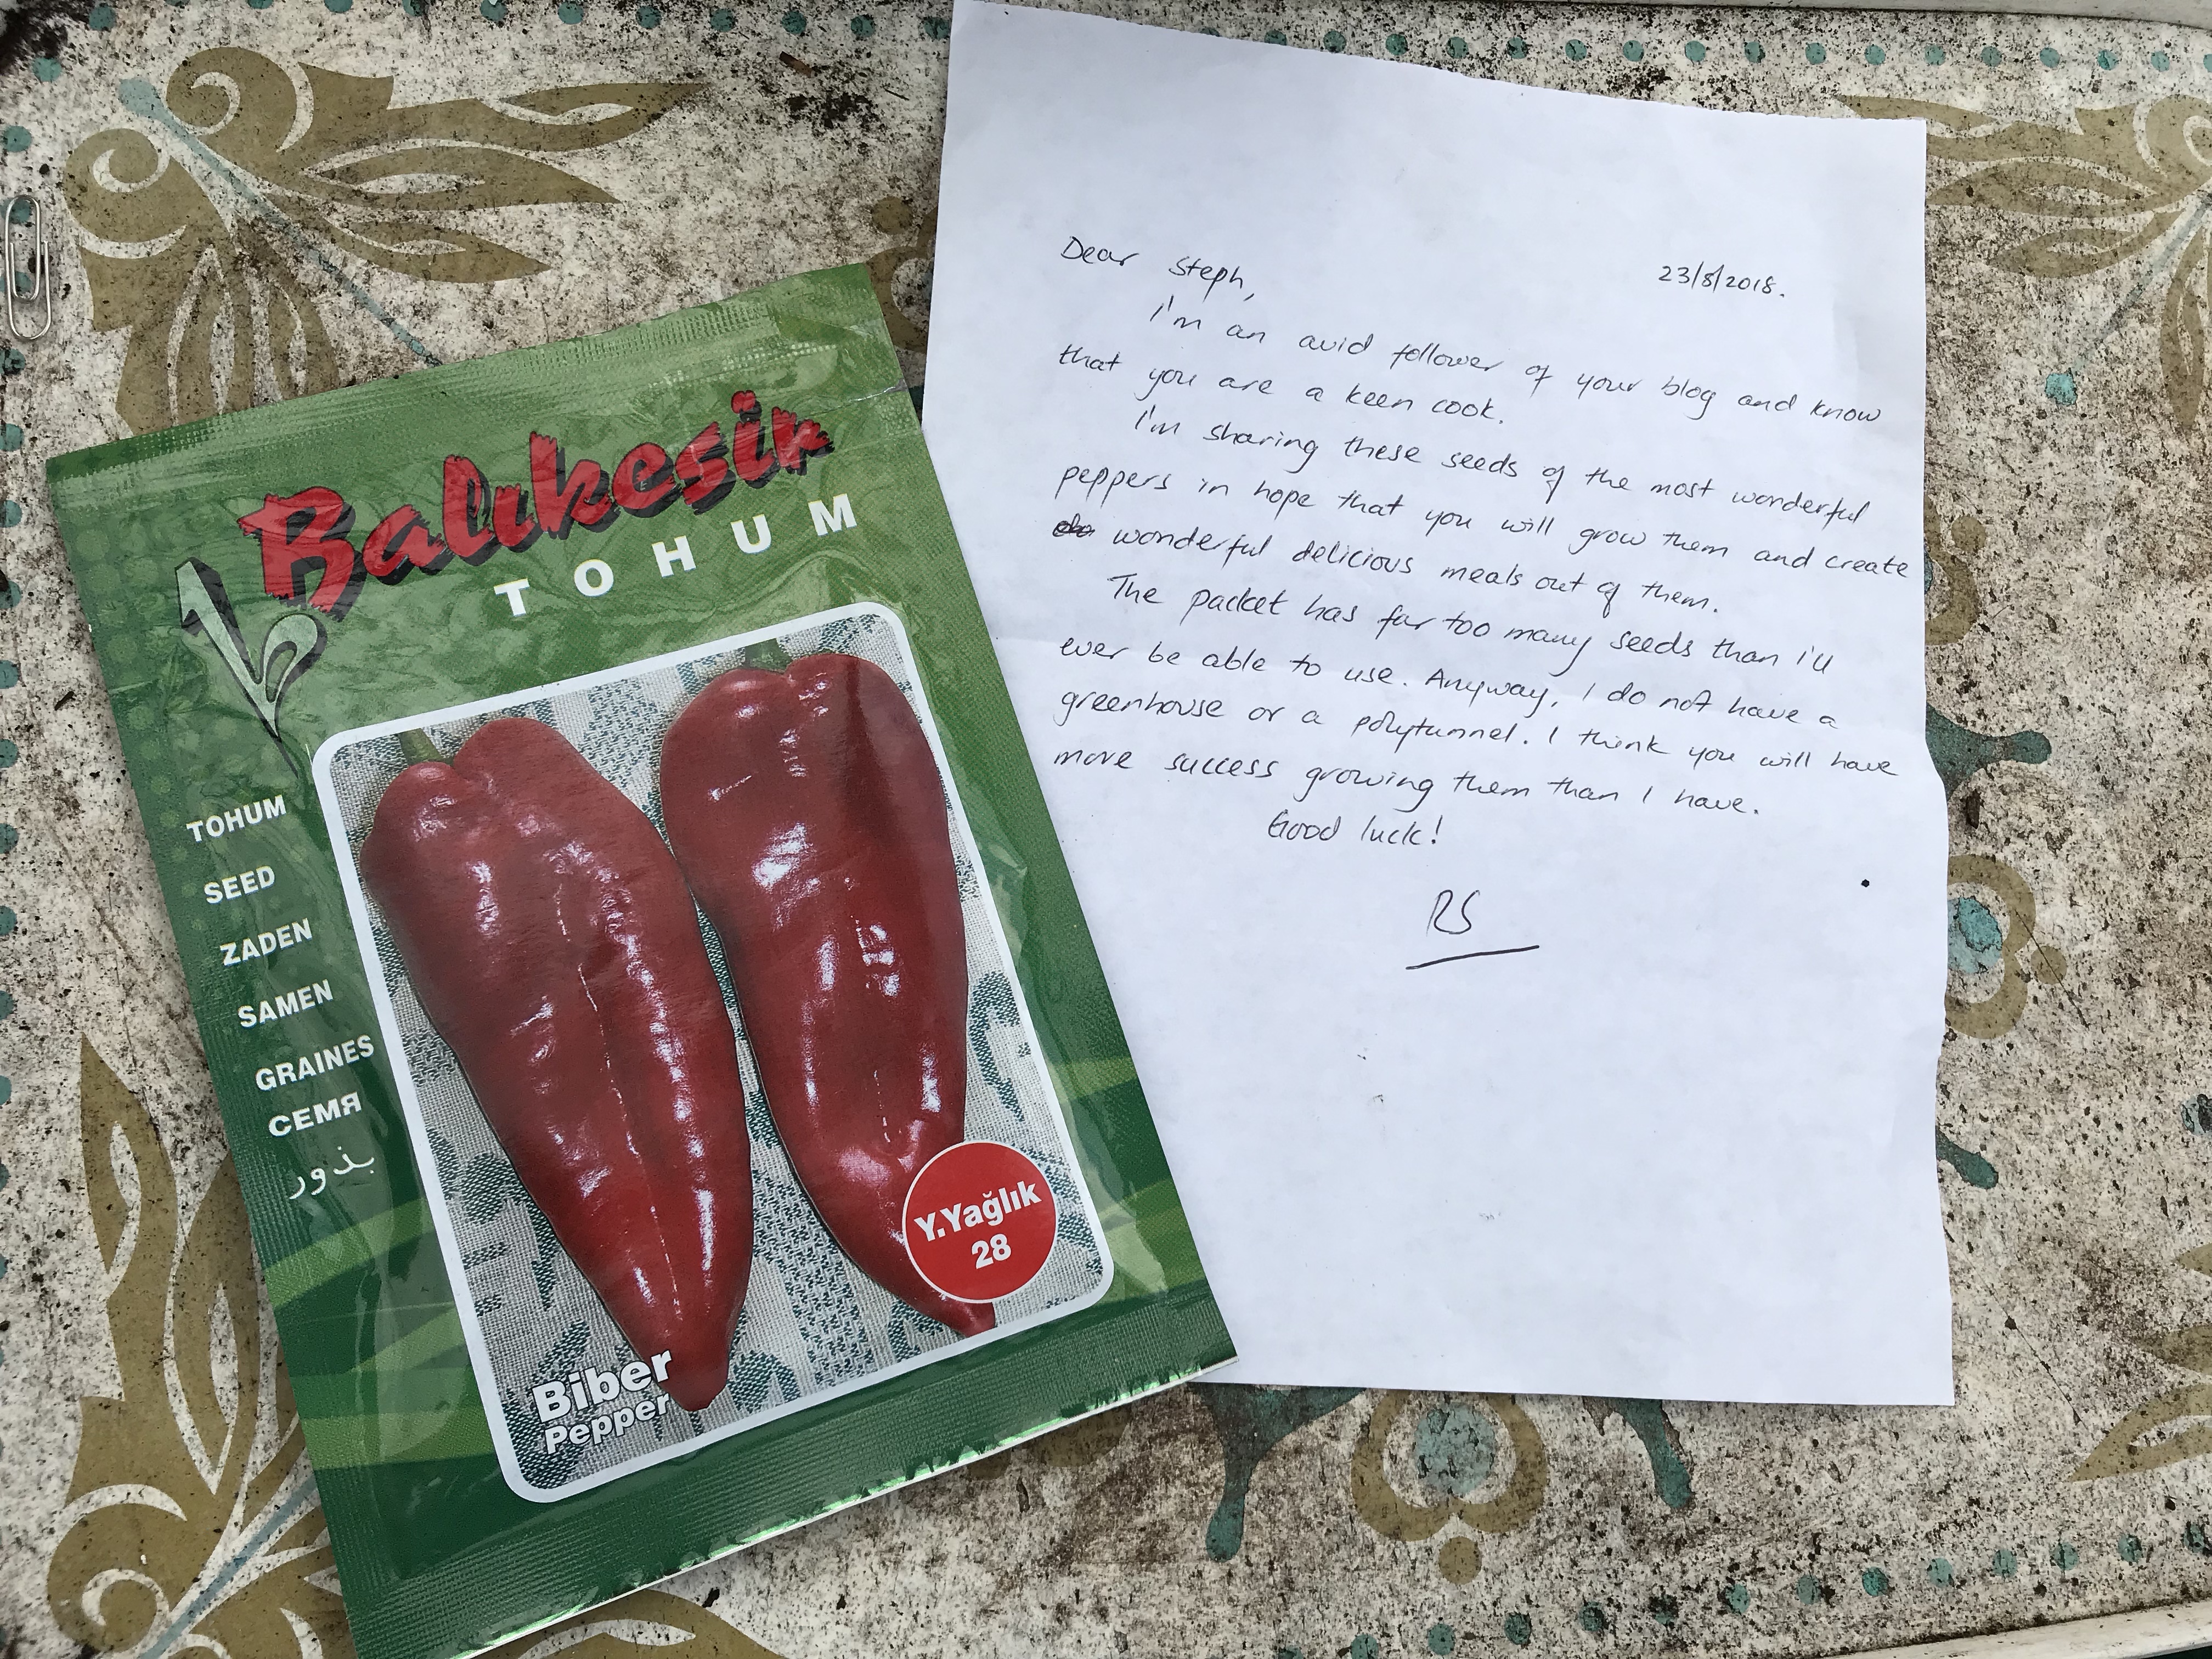 Balıkesir
TOHUM
TOHUM
SEED
ZADEN
SAMEN
GRAINES
СЕМЯ
بذور
Y.Yağlık
28
Biber
Pepper
23/8/2018.
Dear Steph,
I'm an avid follower of your blog and know
that you are a keen cook.
I'm sharing these seeds of the most wonderful
peppers in hope that you will grow them and create
wonderful delicious meals out of them.
The packet has far too many seeds than I'll
ever be able to use. Anyway, I do not have a
greenhouse or a polytunnel. I think you will have
more success growing them than I have.
Good luck!
RS